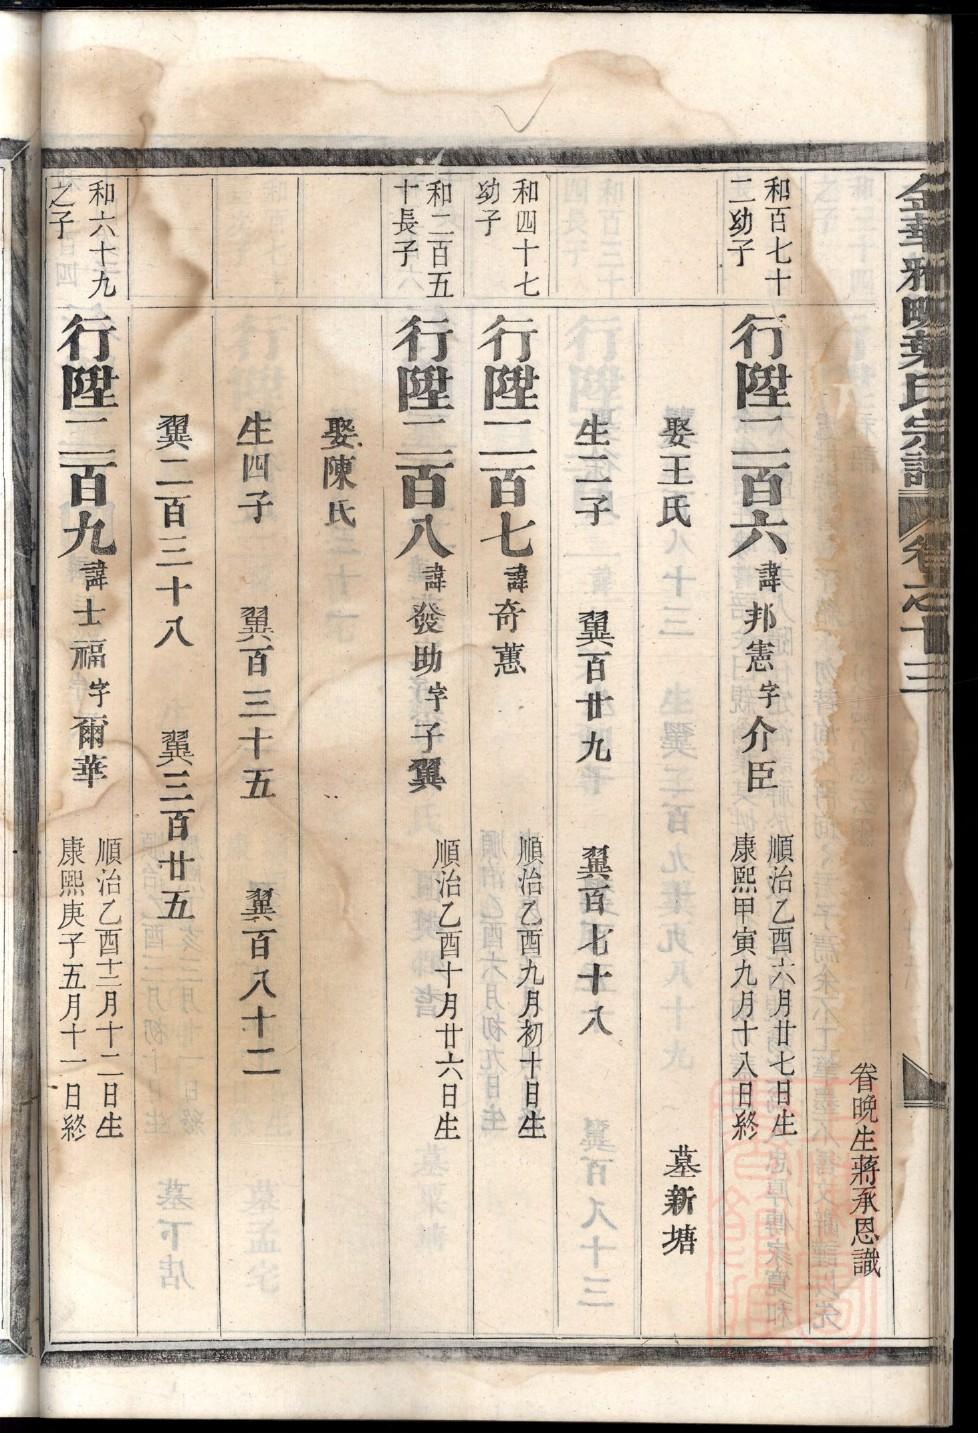 金華雅畈葉氏宗譜 卷之十三
眷晚生蔣承恩識
和百七十
二幼子
行陞二百六 諱邦憲字介臣
順治乙酉六月廿七日生
康熙甲寅九月十八日終
娶王氏 墓新塘
生二子 翼百廿九 翼百七十八
和四十七
幼子
行陞二百七 諱奇蕙
順治乙酉九月初十日生
和二百五
十長子
行陞二百八 諱發助字子翼
順治乙酉十月廿六日生
娶陳氏
生四子 翼百三十五 翼百八十二
翼二百三十八 翼三百廿五
和六十九
之子
行陞二百九 諱士福字爾華
順治乙酉十二月十二日生
康熙庚子五月十一日終